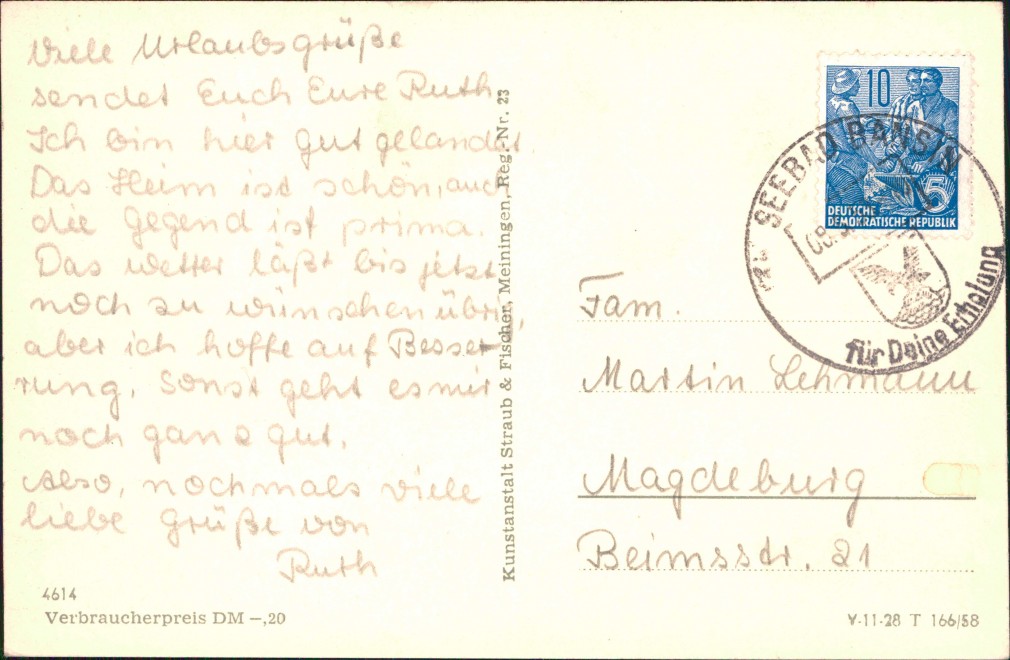 Viele Urlaubsgrüße
sendet Euch Eure Ruth.
Ich bin hier gut gelandet.
Das Heim ist schön, auch
die Gegend ist prima.
Das Wetter läßt bis jetzt
noch zu wünschen übrig,
aber ich hoffe auf Besse-
rung. Sonst geht es mir
noch ganz gut.
Also, nochmals viele
liebe Grüße von
Ruth
4614
Verbraucherpreis DM -,20
Kunstanstalt Straub & Fischer, Meiningen, Reg.-Nr. 23
10
5
DEUTSCHE
DEMOKRATISCHE REPUBLIK
SEEBAD BANSIN
für Deine Erholung
Fam.
Martin Lehmann
Magdeburg
Beimsstr. 21
V-11-28 T 166/58